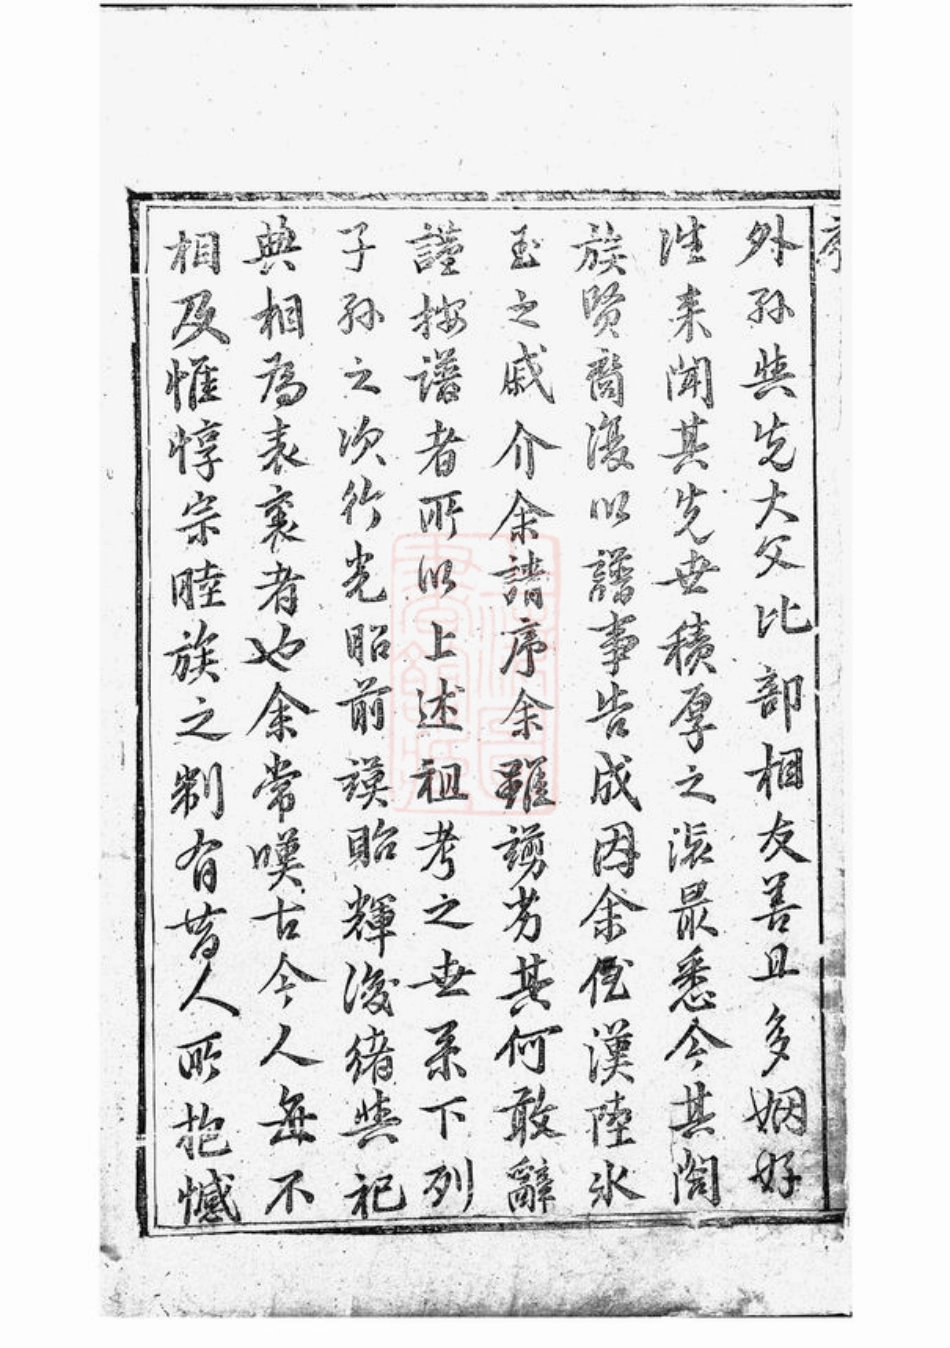 外孙與先大父比部相友善且多姻好
往来闻其先世積厚之派最悉今其阁
族贤裔復以譜事告成因余侄漢陸水
玉之戚介余請序余雖谫劣其何敢辭
謹按譜者所以上述祖考之世系下列
子孙之次行光昭前謨貽輝後緒與祀
典相為表裏者也余常嘆古今人無不
相及惟惇宗睦族之制有昔人所抱憾